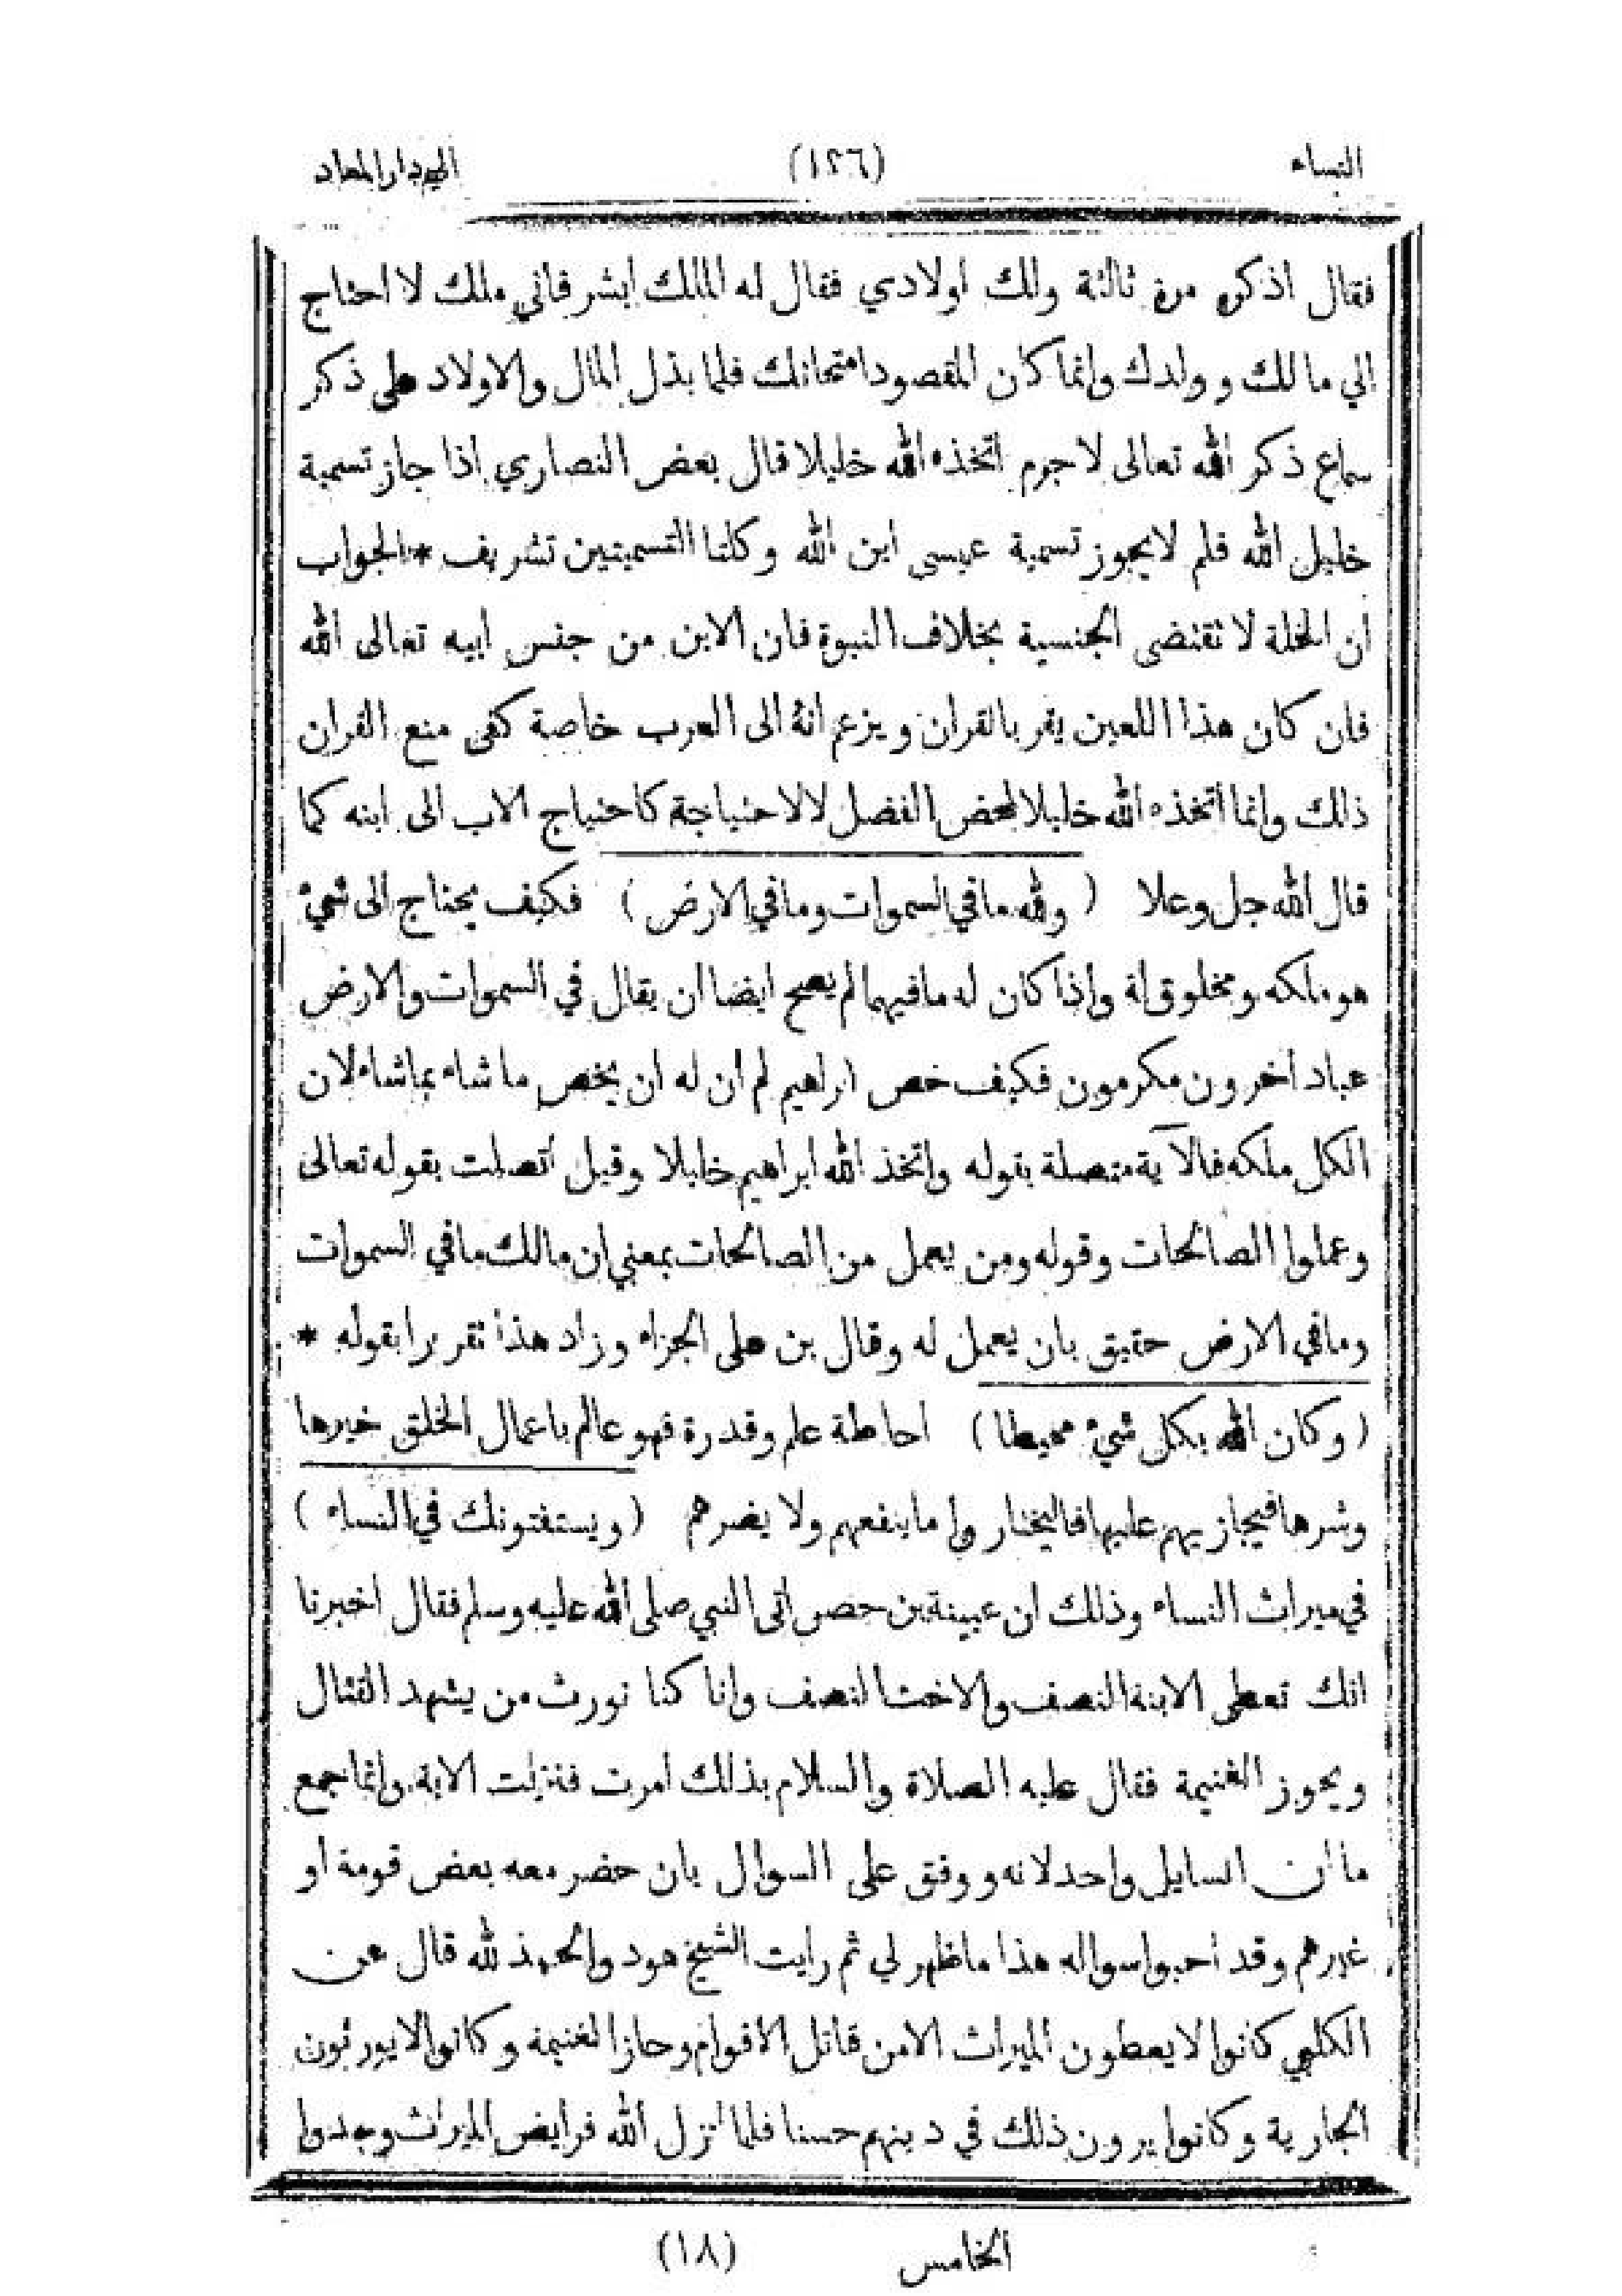 النساء (١٢٦) الي دار المعاد
فقال اذكره مرة ثالثة ولك اولادي فقال له الملك ابشر فاني ملك لا احتاج
الي مالك وولدك وانما كان المقصود امتحانك فلما بذل المال والاولاد على ذكر
سماع ذكر الله تعالى لا جرم اتخذه الله خليلا قال بعض النصاري اذا جاز تسمية
خليل الله فلم لا يجوز تسمية عيسى ابن الله وكلتا التسميتين تشريف * الجواب
ان الخلة لا تقتضى الجنسية بخلاف النبوة فان الابن من جنس ابيه تعالى الله
فان كان هذا اللعين يقر بالقران ويزعم انه الى العرب خاصة كفى منع القران
ذلك وانما اتخذه الله خليلا لمحض الفضل لا لاحتياجة كاحتياج الاب الى ابنه كما
قال الله جل وعلا (ولله ما في السموات وما في الارض) فكيف يحتاج الى شيئ
هو ملكه ومخلوق له واذا كان له ما فيهما لم يصح ايضا ان يقال في السموات والارض
عباد اخرون مكرمون فكيف خص ابراهيم لم ان له ان يخص ما شاء بما شاء لان
الكل ملكه فالآية متصلة بقوله واتخذ الله ابراهيم خليلا وقيل اتصلت بقوله تعالى
وعملوا الصالحات وقوله ومن يعمل من الصالحات بمعني ان مالك ما في السموات
وما في الارض حقيق بان يعمل له وقال بن على الجزاء وزاد هذا تقريرا بقوله *
(وكان الله بكل شيئ محيطا) احاطة علم وقدرة فهو عالم باعمال الخلق خيرها
وشرها فيجازيهم عليها فاليختار واما ينفعهم ولا يضرهم (ويستفتونك في النساء)
في ميراث النساء وذلك ان عيينة بن حصن اتى النبي صلى الله عليه وسلم فقال اخبرنا
انك تعطى الابنة النصف والاخت النصف وانا كنا نورث من يشهد القتال
ويحوز الغنيمة فقال عليه الصلاة والسلام بذلك امرت فنزلت الاية وانما جمع
ما ان السايل واحد لانه ووفق على السوال بان حضر معه بعض قومة او
غيرهم وقد احبوا سواله هذا ما ظهر لي ثم رايت الشيخ هود والحمد لله قال عن
الكلبي كانوا لا يعطون الميراث الا من قاتل الاقوام وحاز الغنيمة وكانوا لا يورثون
الجارية وكانوا يرون ذلك في دينهم حسنا فلما انزل الله فرايض الميراث وجدوا
الخامس (١٨)